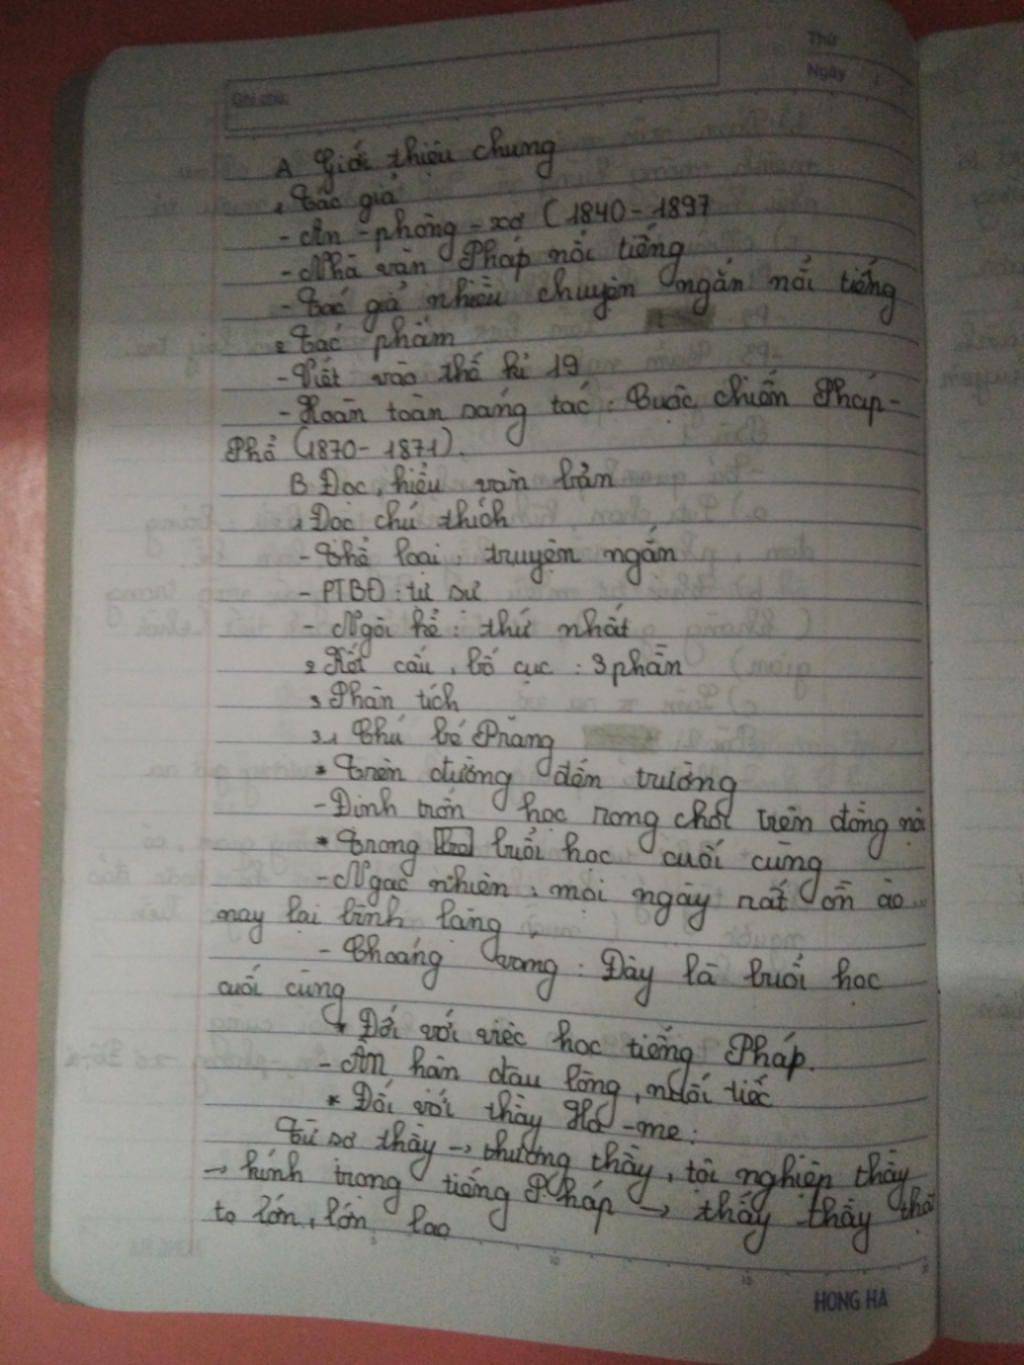 Thứ
Ngày
Ghi chú:
A Giới thiệu chung
1 Tác giả
- An - phông - xơ (1840 - 1897
- Nhà văn Pháp nổi tiếng
- Tác giả nhiều chuyện ngắn nổi tiếng
2 Tác phẩm
- Viết vào thế kỉ 19
- Hoàn toàn sáng tác : Cuộc chiến Pháp -
Phổ (1870 - 1871).
B Đọc, hiểu văn bản
1 Đọc chú thích
- Thể loại : truyện ngắn
- PTBĐ : tự sự
- Ngôi kể : thứ nhất
2 Kết cấu, bố cục : 3 phần
3 Phân tích
3.1 Chú bé Phrăng
* Trên đường đến trường
- Định trốn học rong chơi trên đồng nội
* Trong buổi học cuối cùng
- Ngạc nhiên : mọi ngày rất ồn ào
nay lại bình lặng
- Choáng váng : Đây là buổi học
cuối cùng
* Đối với việc học tiếng Pháp.
- Ân hận đau lòng, nuối tiếc
* Đối với thầy Ha - men :
Từ sợ thầy → thương thầy, tội nghiệp thầy
→ kính trọng tiếng Pháp → thấy thầy thật
to lớn, lớn lao
HONG HA